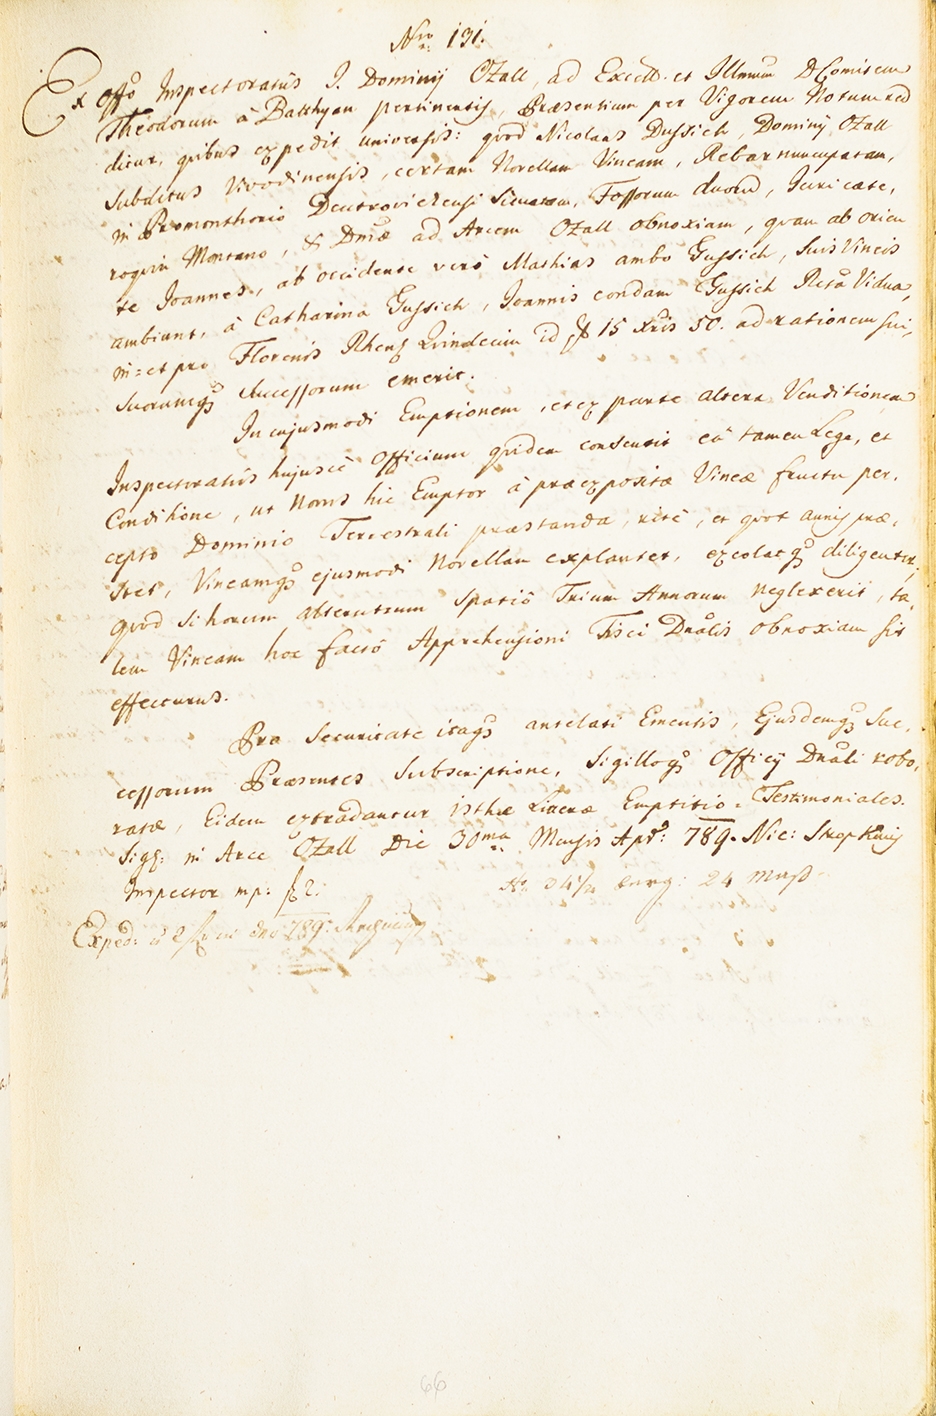 Nro 131.
Ex offo Inspectoratûs I. Dominij Ozall, ad Excell. et Illmum D Comitem
Theodorum à Batthyan pertinentis, Præsentium per Vigorem Notum red
ditur, quibus expedit universis: quod Nicolaus Dussich, Dominij Ozall
subditus Vivodinensis, certam Novellam Vineam, Rebar nuncupatam,
in Promonthorio Deutrovichensi Sitaram, Fossorum duorum, Juri cæte,
roquin Montano, & Dmæ ad Arcem Ozall obnoxiam, quam ab orien
te Joannes, ab occidente verò Mathias ambo Gussich, suis Vineis
ambiunt, à Catharina Gussich, Joannis condam Gussich Relâ Vidua,
in= et pro Florenis Rhens Quindecim id f 15 Xris 50. ad rationem sui,
suorumqȝ successorum emerit.
In cujusmodi Emptionem, et ex parte altera Venditionem
Inspectoratûs hujusce Officium quidem consentit eâ tamen Lege, et
Conditione, ut Novus hic Emptor à præexpositæ Vineæ fructu per,
cepto Dominio Terrestrali præstanda, ritè, et quot annis præ,
stet, Vineamqȝ ejusmodi Novellam explantet, excolatqȝ diligenter,
quod si horum alterutrum spatiô Trium Annorum neglexerit, ta,
lem Vineam hoc factô Apprehensioni Fisci Dnâlis obnoxiam sit
effecturus.
Pro Securitate itaqȝ antelati Ementis, Ejusdemqȝ Suc,
cessorum Præsentes Subscriptione, Sigilloqȝ Officij Dnâli robo,
ratæ, Eidem extradantur isthæ Literæ Emptitio-Testimoniales.
Sigȝ: in Arce Ozall Die 30ma Mensis Apr: 789. Nic: Skop Kinij
Inspector mp: f 2.
34 1/2 24
Exped: 2 789:
66